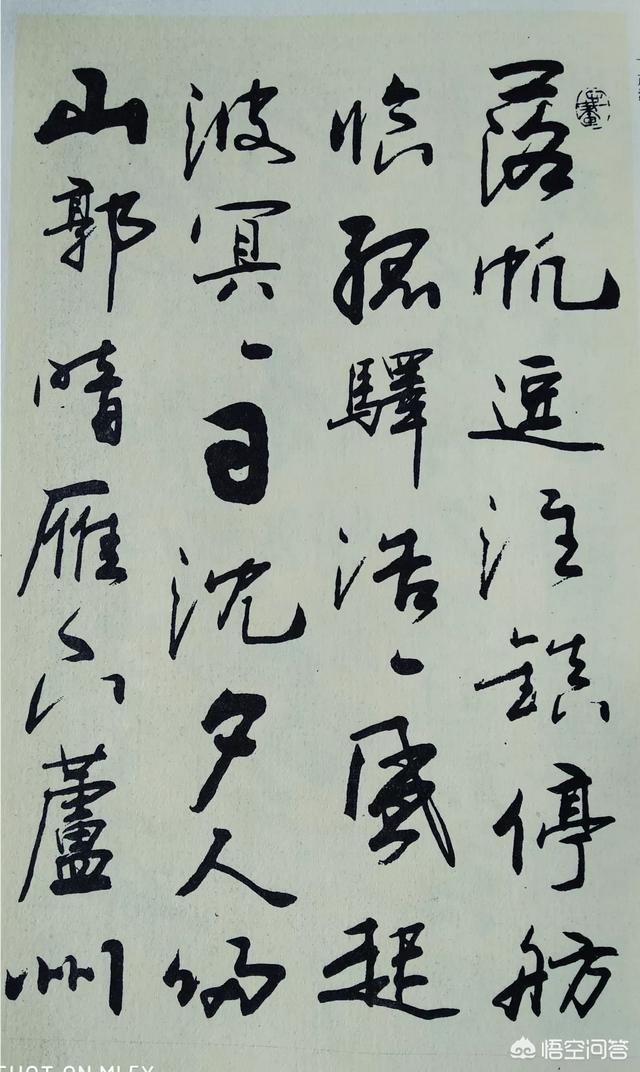 落帆逗淮鎮停舫
臨孤驛浩、風起
波冥、日沈夕人歸
山郭暗雁下蘆洲
悟空问答
SHOT ON MLEX